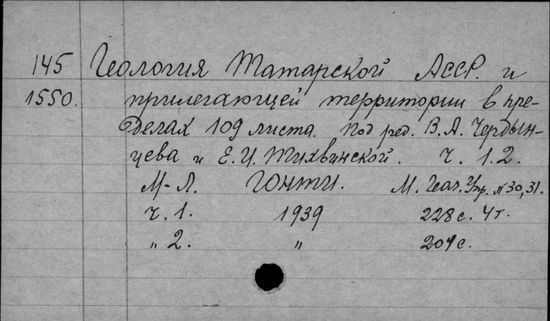 145 Геология Татарской АССР. и
1550. прилегающей территории в пре-
делах 109 листа. Под ред. В.А. Чердын-
цева и Е.И. Тихвинской. ч. 1.2.
М-Л. ГОНТИ. М. Геол. Упр. №30,31.
ч. 1. 1939 228с. 4т.
„ 2. „ 204с.